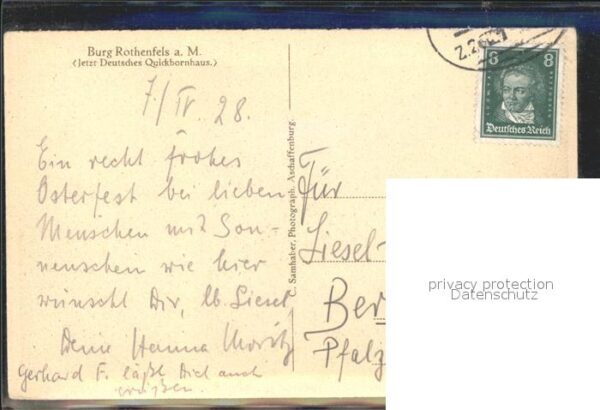 Burg Rothenfels a. M.
(Jetzt Deutsches Quickbornhaus.)
7/IV. 28.
Ein recht frohes
Osterfest bei lieben
Menschen mit Son-
nenschein wie hier
wünscht Dir, lb. Liesel
Deine Hanna Moritz
Gerhard F. läßt Dich auch
grüßen.
C. Samhaber, Photograph, Aschaffenburg.
Für
Liesel
Ber
Pfalz
8 8
Deutsches Reich
privacy protection
Datenschutz